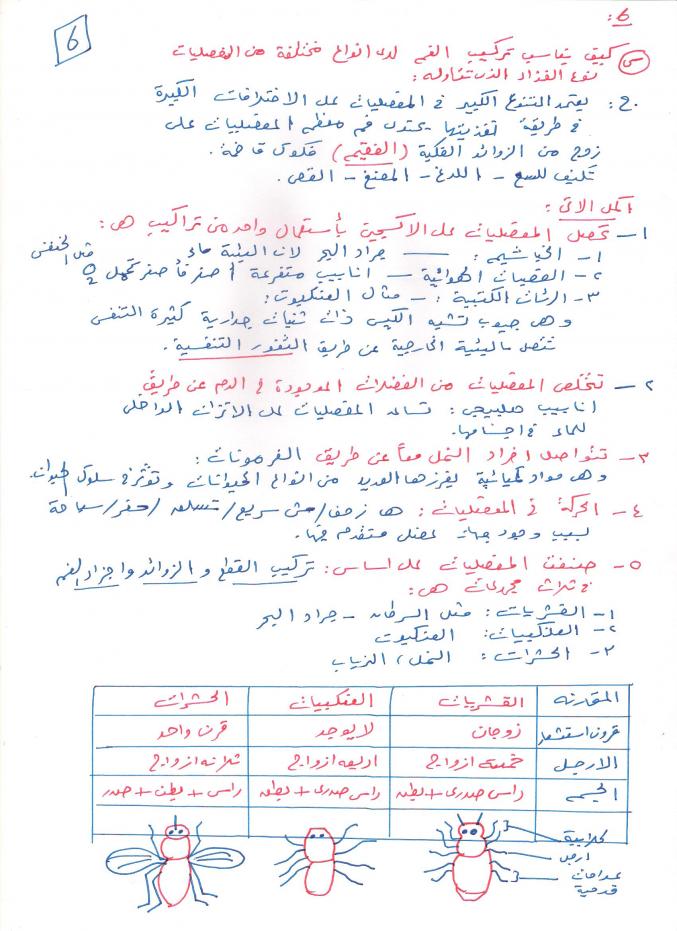 6:
6
س كيف يناسب تركيب الفم لدى انواع مختلفة من المفصليات
نوع الغذاء الذي تتناوله:
ج: يعتمد التنوع الكبير في المفصليات على الاختلافات الكبيرة
في طريقة تغذيتها يحتوي فم معظم المفصليات على
زوج من الزوائد الفكية (الفقيم) فكوك قاضمة.
تكيف للسع - اللدغ - المضغ - القص.
اكمل الاتي:
١- تحصل المفصليات على الاكسجين بأستعمال واحد من تراكيب هي:
١- الخياشيم: — جراد البحر لان البيئة ماء
٢- القصبات الهوائية — انابيب متفرعة اصغر فأصغر تحمل O2 مثل الخنفس
٣- الرئات الكتبية: - مثال العنكبوت:
وهي جيوب تشبه الكيس ذات ثنيات جدارية كثيرة التنفس
تتصل بالبيئة الخارجية عن طريق الثغور التنفسية.
٢- تتخلص المفصليات من الفضلات الموجودة في الدم عن طريق
انابيب ملبيجي: تساعد المفصليات على الاتزان الداخلي
للماء في اجسامها.
٣- تتواصل افراد النمل معاً عن طريق الفرمونات:
وهي مواد كيميائية يفرزها العديد من انواع الحيوانات وتؤثر في سلوك الحيوان.
٤- الحركة في المفصليات: ها زحف/مش سريع/تسلق/حفر/سباحة
لسبب وجود جهاز عضلي متقدم فيها.
٥- صنفت المفصليات على اساس: تركيب القطع و الزوائد واجزاء الفم
في ثلاث مجموعات هي:
١- القشريات: مثل السرطان - جراد البحر
٢- العنكبيات: العنكبوت
٣- الحشرات: النمل، الذباب
المقارنه القشريات العنكبيات الحشرات
قرون استشعار زوجان لا يوجد قرن واحد
الارجل خمسه ازواج اربعه ازواج ثلاثه ازواج
الجسم راس صدري + بطن راس صدري + بطن راس + بطن + صدر
كلابية
ارجل
عوامات
قدمية